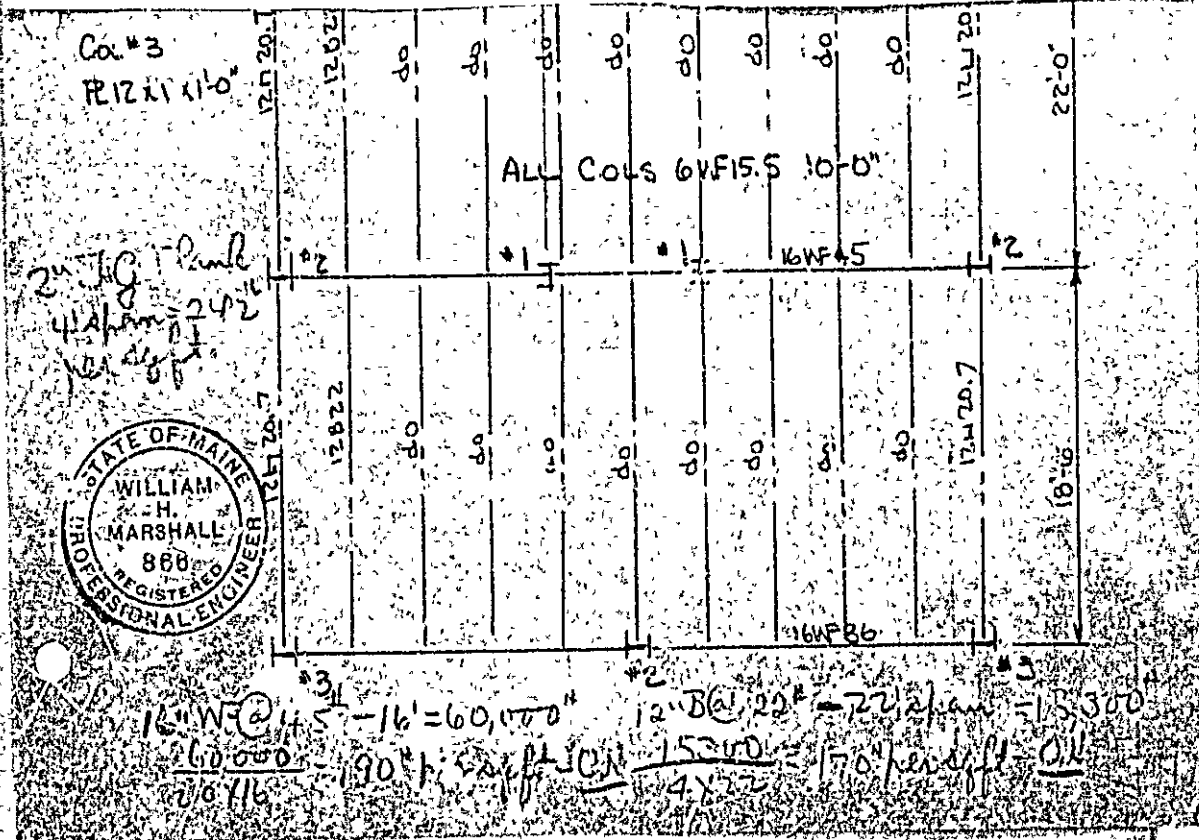 Col. #3
PL 12 x 1 x 1'-0"
12 L 20.7
12B22
do
do
do
do
do
do
do
do
12 L 20
22'-0"
ALL COLS 6WF15.5 10-0"
#2
#1
#1
16WF45
#2
2" T&G Plank
4' span = 242#
per sq ft
12 L 20.7
12B22
do
do
do
do
do
do
do
do
12 L 20.7
18'-6"
STATE OF MAINE
WILLIAM
H.
MARSHALL
866
REGISTERED
PROFESSIONAL ENGINEER
16WF36
#3
#2
#3
16" WF @ 45# - 16' = 60,000# 12" B @ 22# - 22' span = 15,300#
60000 = 190# per sq ft OK 15300 = 170# per sq ft OK
20 x 16 4 x 22